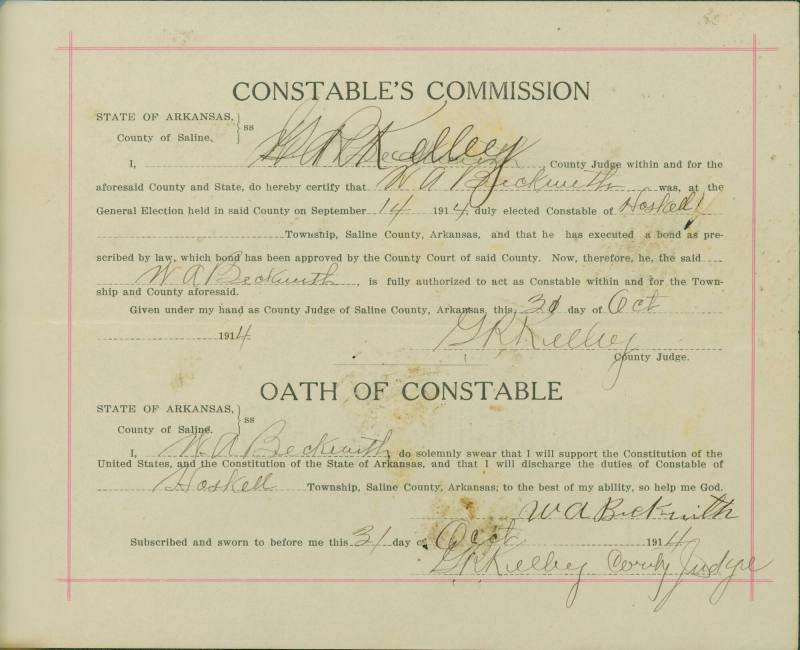 CONSTABLE'S COMMISSION
STATE OF ARKANSAS,
County of Saline,
ss
I, G R Kelley, County Judge within and for the
aforesaid County and State, do hereby certify that W A Beckwith was, at the
General Election held in said County on September 14 1914, duly elected Constable of Haskell
Township, Saline County, Arkansas, and that he has executed a bond as pre-
scribed by law, which bond has been approved by the County Court of said County. Now, therefore, he, the said
W A Beckwith, is fully authorized to act as Constable within and for the Town-
ship and County aforesaid.
Given under my hand as County Judge of Saline County, Arkansas, this 31 day of Oct
1914
G R Kelley
County Judge.
OATH OF CONSTABLE
STATE OF ARKANSAS,
County of Saline.
ss
I, W. A Beckwith, do solemnly swear that I will support the Constitution of the
United States, and the Constitution of the State of Arkansas, and that I will discharge the duties of Constable of
Haskell Township, Saline County, Arkansas; to the best of my ability, so help me God.
W A Beckwith
Subscribed and sworn to before me this 31 day of Oct 1914
G R Kelley County Judge